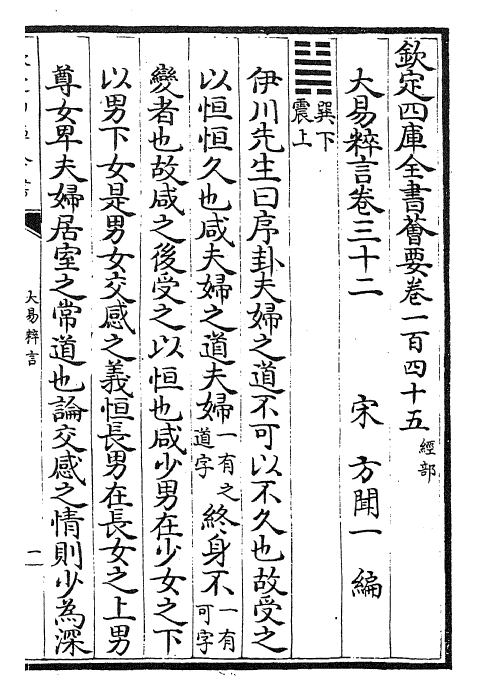 欽定四庫全書薈要卷一百四十五 經部
大易粹言卷三十二 宋 方聞一 編
䷟ 巽下 震上
伊川先生曰序卦夫婦之道不可以不久也故受之
以恒恒久也咸夫婦之道夫婦一有之道字終身不一有可字
變者也故咸之後受之以恒也咸少男在少女之下
以男下女是男女交感之義恒長男在長女之上男
尊女卑夫婦居室之常道也論交感之情則少為深
大易粹言
一